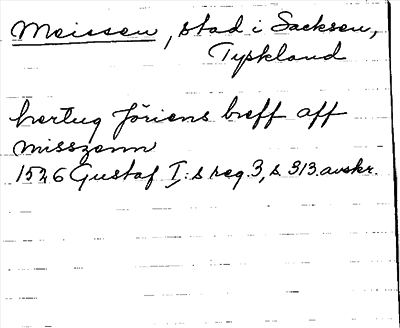 Meissen, stad i Sachsen,
Tyskland
hertug Jöriens breff aff
misszenn
1526 Gustaf I:s reg. 3, s 313. avskr.